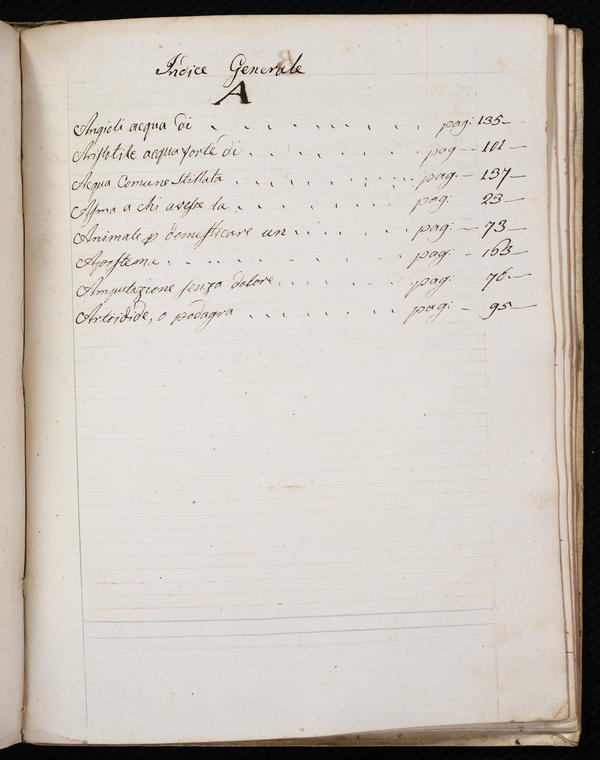 Indice Generale
A
Angioli acqua di . . . . . . . . pag: 135
Aristotile acqua forte di . . . . . . pag 101
Acqua Comune Stillata . . . . . . . . . pag. 137
Asma a chi avesse la . . . . . . . . pag: 23
Animale p domesticare un . . . . . . pag: 73
Apostema . . . . . . . . . pag: 163
Amputazione senza dolore . . . . . . pag: 76
Artridide, o podagra . . . . . . . pag: 95